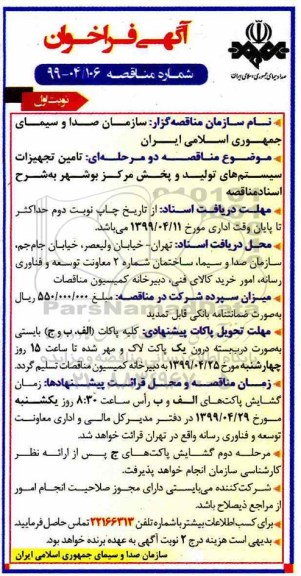 صدا و سیمای جمهوری اسلامی ایران
آگهی فراخوان
شماره مناقصه ۱۰۶/۰۴-۹۹
نوبت اول
نام سازمان مناقصه‌گزار: سازمان صدا و سیمای
جمهوری اسلامی ایران
موضوع مناقصه دو مرحله‌ای: تامین تجهیزات
سیستم‌های تولید و پخش مرکز بوشهر به‌شرح
اسناد مناقصه
مهلت دریافت اسناد: از تاریخ چاپ نوبت دوم حداکثر
تا پایان وقت اداری مورخ ۱۳۹۹/۰۴/۱۱ می‌باشد.
محل دریافت اسناد: تهران- خیابان ولیعصر، خیابان جام‌جم،
سازمان صدا و سیما، ساختمان شماره ۲ معاونت توسعه و فناوری
رسانه، امور خرید کالای فنی، دبیرخانه کمیسیون مناقصات
میزان سپرده شرکت در مناقصه: مبلغ ۵۵۰/۰۰۰/۰۰۰ ریال
به‌صورت ضمانتنامه بانکی قابل تمدید
مهلت تحویل پاکات پیشنهادی: کلیه پاکات (الف، ب و ج) بایستی
به‌صورت دربسته درون یک پاکت لاک و مهر شده تا ساعت ۱۵ روز
چهارشنبه مورخ ۱۳۹۹/۰۴/۲۵ به دبیرخانه کمیسیون مناقصات تسلیم گردد.
زمان مناقصه و محل قرائت پیشنهادها: زمان
گشایش پاکت‌های الف و ب رأس ساعت ۸:۳۰ روز یکشنبه
مورخ ۱۳۹۹/۰۴/۲۹ در دفتر مدیرکل مالی و اداری معاونت
توسعه و فناوری رسانه واقع در تهران قرائت خواهد شد.
مرحله دوم گشایش پاکت‌های ج پس از ارائه نظر
کارشناسی سازمان انجام خواهد پذیرفت.
شرکت‌کننده می‌بایستی دارای مجوز صلاحیت انجام امور
از مراجع ذیصلاح باشد.
برای کسب اطلاعات بیشتر با شماره تلفن ۲۲۱۶۶۳۱۳ تماس حاصل فرمایید.
بدیهی است هزینه درج ۲ نوبت آگهی به عهده برنده خواهد بود.
سازمان صدا و سیمای جمهوری اسلامی ایران